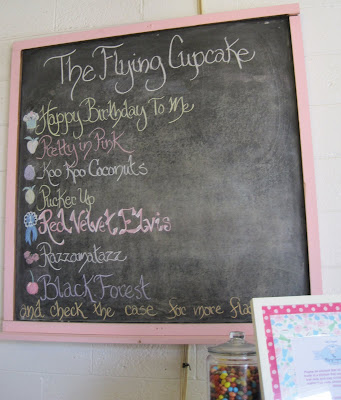 The Flying Cupcake
Happy Birthday To Me
Pretty in Pink
Koo Koo Coconuts
Pucker Up
Red Velvet Elvis
Razzamatazz
Black Forest
and check the case for more